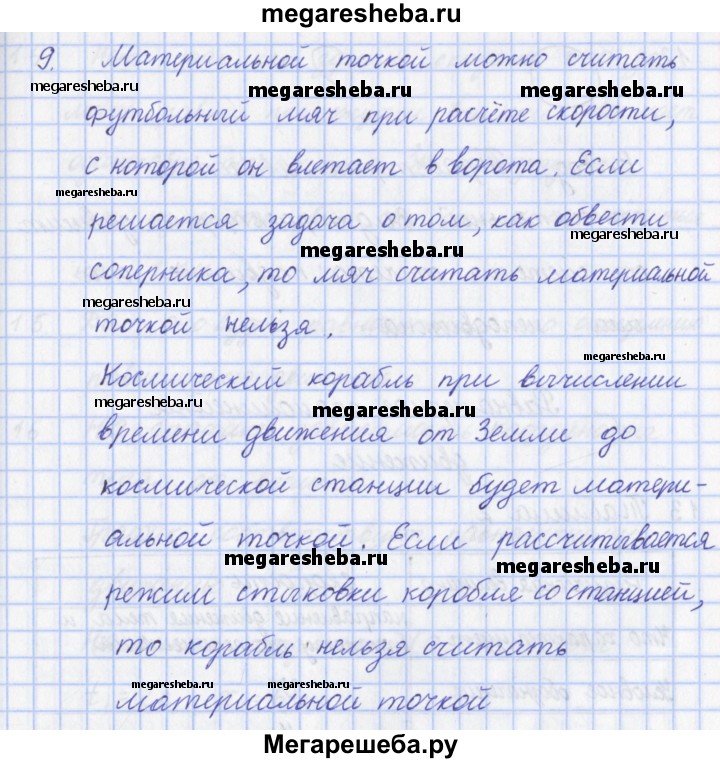 megaresheba.ru
9. Материальной точкой можно считать
megaresheba.ru megaresheba.ru megaresheba.ru
футбольный мяч при расчёте скорости,
с которой он влетает в ворота. Если
megaresheba.ru
решается задача о том, как обвести
megaresheba.ru megaresheba.ru
соперника, то мяч считать материальной
megaresheba.ru
точкой нельзя.
megaresheba.ru
Космический корабль при вычислении
megaresheba.ru megaresheba.ru
времени движения от Земли до
космической станции будет матери-
альной точкой. Если рассчитывается
megaresheba.ru megaresheba.ru
режим стыковки коробля со станцией,
то корабль нельзя считать
megaresheba.ru megaresheba.ru
материальной точкой
Мегарешеба.ру